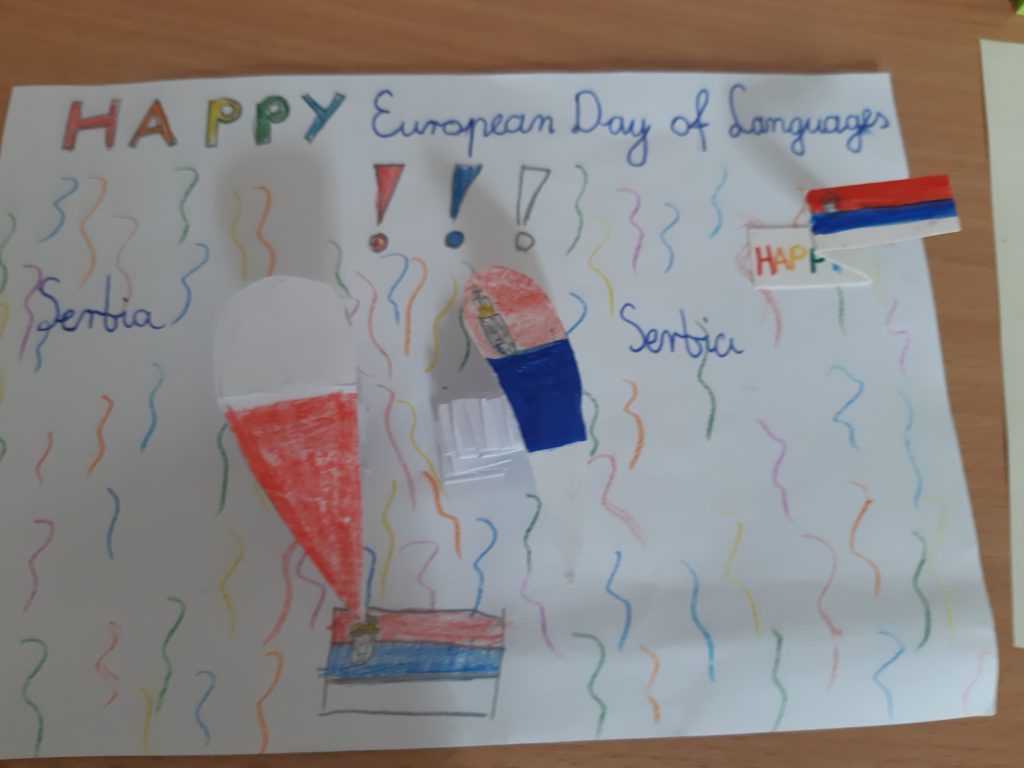 HAPPY European Day of Languages
!!!
HAPP
Serbia
Serbia